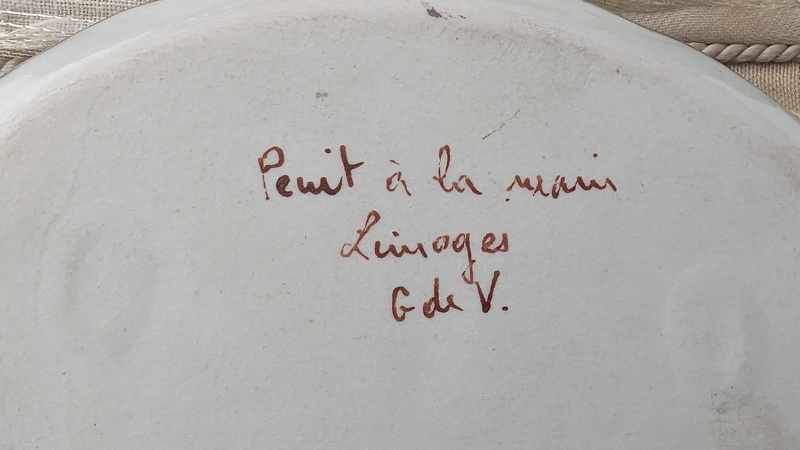 Peint à la main
Limoges
G de V.